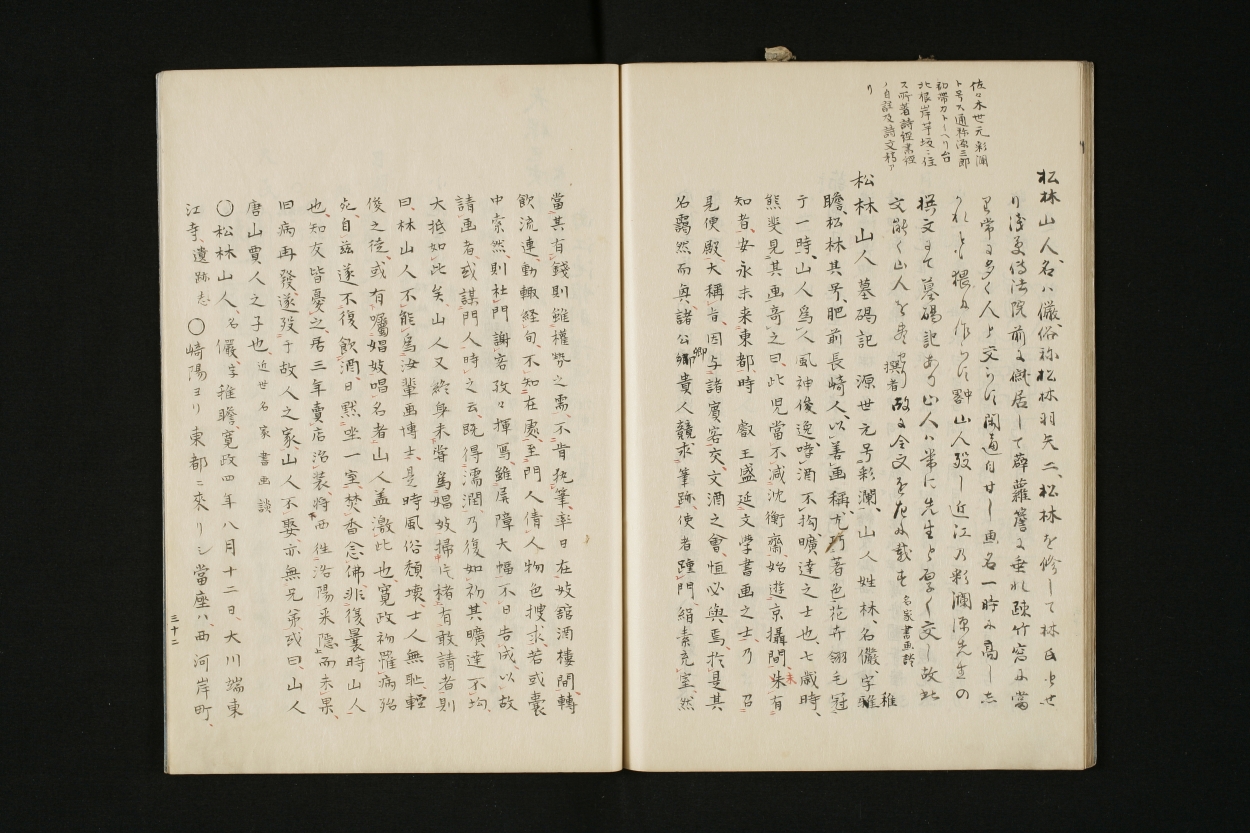 佐々木世元彩瀾
ト号ス通称源三郎
初帯刀トイヘリ台
北根岸芋坂ニ住
ス所著詩経書経
ノ自註及詩文稿ア
リ
松林山人名ハ儼俗称松林羽矢二松林を修して林氏とせ
り浅草傳法院前に僦居して薜蘿簷に垂れ疎竹窓に當
り常に多く人と交らす閑適自甘し画名一時に高し
れとも猥に作らす山人歿し近江の彩瀾源先生の
撰文にて墓碣記あり山人ハ常に先生と厚く交し故此
文能く山人を 撰者 故に全文を左に載す 名家書画談
松林山人墓碣記 源世元号彩瀾 山人姓林、名儼、字雅 稚
瞻、松林其号、肥前長崎人、以善画稱、尤巧著色花卉翎毛、冠
于一時、山人爲人風神俊逸、嗜酒不拘、曠達之士也、七歳時、
熊斐見其画奇之曰、此児當不減沈衡齋、始遊京攝間、未有
知者、安永末来東都、時 叡王盛延文學書画之士、乃 召
見便殿、大稱旨、因与諸賓客交、文酒之會、恒必與焉、於是其
名靄然而興、諸公卿貴人競求筆跡、使者踵門、絹素充室、然
當其有錢、則雖權勢之需、不肯執筆、率日在妓館酒樓間、轉
飲流連、動輙経旬、不知在處、至門人倩人物色捜求、若或嚢
中索然、則杜門謝客、孜々揮寫、雖屏障大幅、不日告成、以故
請画者、或謀門人時之云、既得濡潤、乃復如初、其曠達不拘、
大抵如此矣、山人又終身未嘗為娼妓掃片楮、有敢請者、則
曰、林山人不能爲汝輩画博士、是時風俗頽壊、士人無恥、軽
俊之徒、或有囑娼妓唱名者、山人蓋激此也、寛政初罹病殆
危、自茲遂不復飲酒、日黙坐一室、焚香念佛、非復曩時山人
也、知友皆憂之、居三年、賣店治装、将西往洛陽来隠、而未果、
旧病再發、遂歿于故人之家、山人不娶、亦無兄弟、或曰、山人
唐山賈人之子也、 近世名家書画談
〇松林山人、名儼、字稚瞻、寛政四年八月十二日、大川端東
江寺、遺跡志 〇崎陽ヨリ東都ニ來リシ當座ハ、西河岸町、
三十二